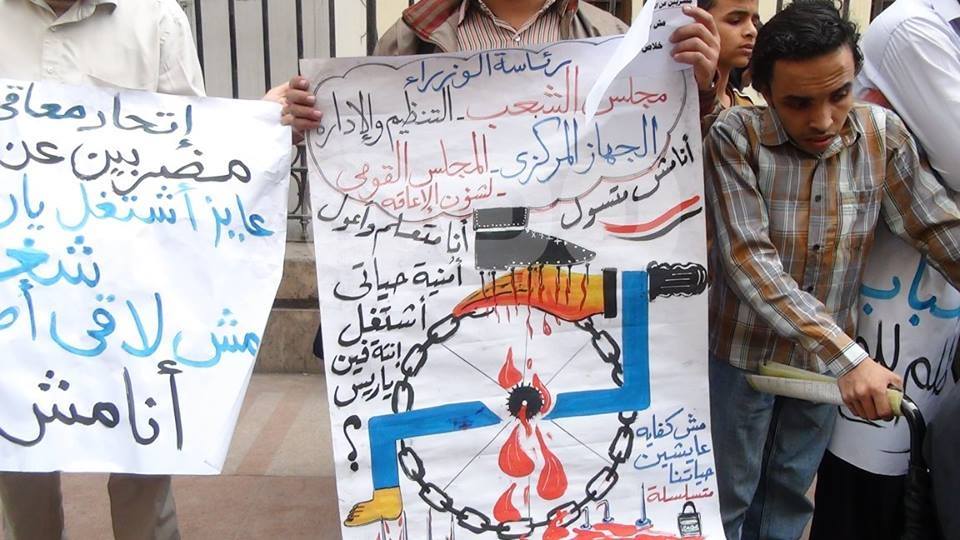 إتحاد معاقى
مصر بين عن
عايز أشتغل ياريس
شغل
مش لاقى أ
أنا مش
رئاسة الوزراء
مجلس الشعب - التنظيم والإدارة
الجهاز المركزى - المجلس القومى
لشئون الإعاقه
أنا مش متسول
أنا متعلم وأعول
أمنية حياتى
أشتغل
إنتة فين
ياريس
؟
مش كفايه
عايشين
حياتنا
متسلسلة
خلاص